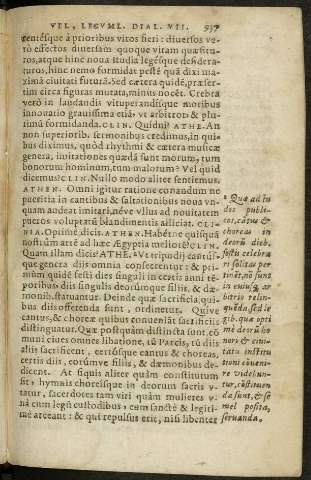 VEL, LEGVML. DIAL. VII. 937
centésque à prioribus vitos fieri : diuersos ve-
rò effectos diuersam quoque vitam quæsitu-
ros, atque hinc noua studia legésque desidera-
turos, hinc nemo formidat pestē quā dixi ma-
ximā ciuitati futurā. Sed cætera quidē, præser-
tim circa figuras mutata, minus nocēt. Crebra
verò in laudandis vituperandisque moribus
innouatio grauissima etiā: vt arbitror & plu-
rimū formidanda. CLIN. Quidni? ATHE. An
non superiorib. sermonibus credimus, in qui-
bus diximus, quòd rhythmi & cætera musicæ
genera, imitationes quædā sunt morum, tum
bonorum hominum, tum malorum? Vel quid
dicemus? CLIN. Nullo modo aliter sentiemus.
ATHEN. Omni igitur ratione conandum ne
pueritia in cantibus & saltationibus noua vn-
quam audeat imitari, néve vllus ad nouitatem
pueros voluptatū blandimentis alliciat. CLI-
NIA. Optimè dicis. ATHEN. Habétne quisquā
nostrūm artē ad hæc Ægyptia meliorē? CLIN.
Quam illam dicis? ATHE. ª Vt tripudij cantús-
que genera diis omnia consecrentur: & pri-
mùm quidē festi dies singuli in certis anni tē-
poribus diis singulis deorúmque filiis, & dæ-
monib. statuantur. Deinde quæ sacrificia, qui-
bus diis offerenda sunt, ordinetur. Quíve
cantus, & choreæ quibus conueniāt sacrificiis
distinguatur. Quæ postquàm distincta sunt, cō
muni ciues omnes libatione, tū Parcis, tū diis
aliis sacrificent, certósque cantus & choreas,
certis diis, eorúmve filiis, & dæmonibus de-
dicent. At siquis aliter quàm constitutum
sit, hymnis choreísque in deorum sacris v-
tatur, sacerdotes tam viri quàm mulieres v-
nà cum legū custodibus: eum sanctè & legiti-
mè arceant: & qui repulsus erit, nisi libenter
ª Quæ ad lu
dos publi-
cos, cātus &
choreas in
deorū dieb.
festis celebra
ri solitas per
tinēt, nō sunt
in cuiusq́; ar
bitrio relin-
quēda, sed le
gib. quæ opti
mè deorū ho
nori & ciui-
tatu institu
tioni conueni-
re videbun-
tur, cōstituen
da sunt, & se
mel posita,
seruanda.